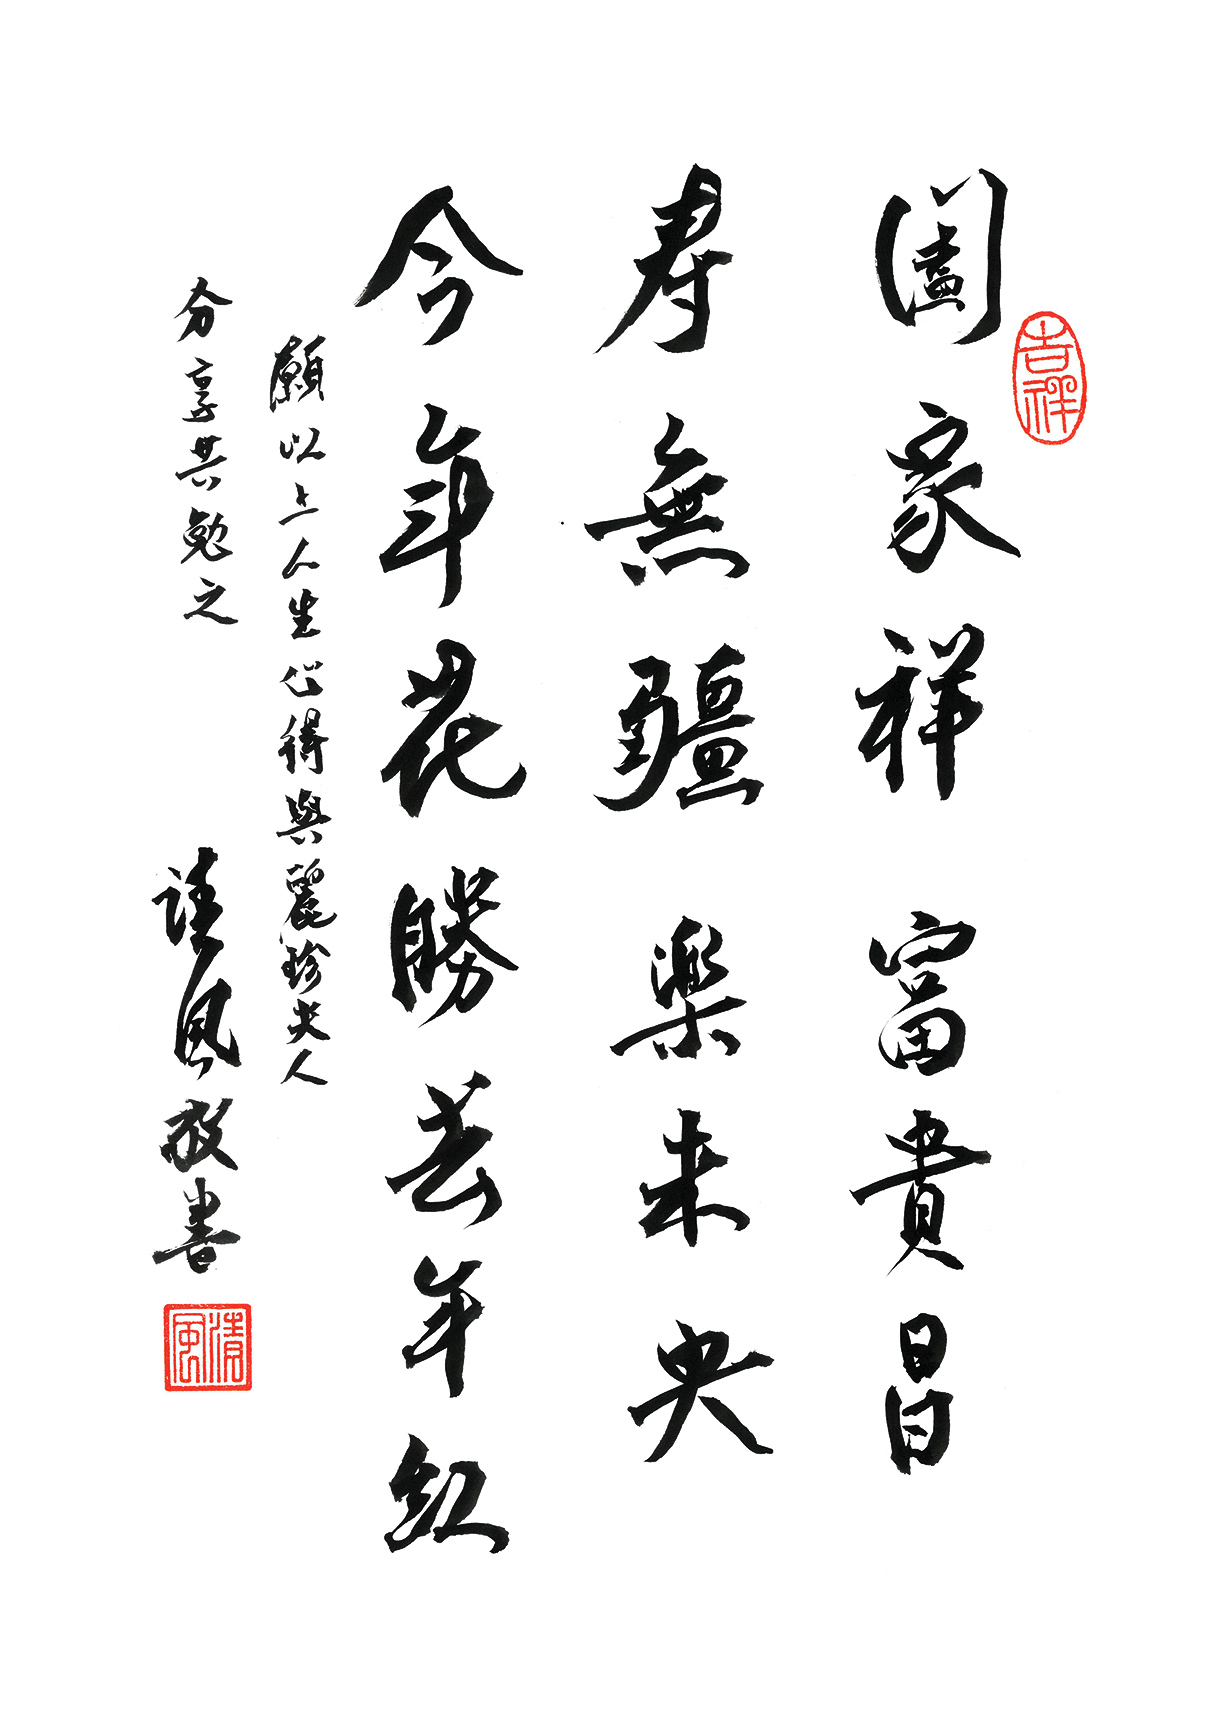 闔家祥 富貴昌
吉祥
壽無疆 樂未央
今年花勝去年紅
願以上人生心得與麗珍夫人
分享共勉之 清風敬書
清風